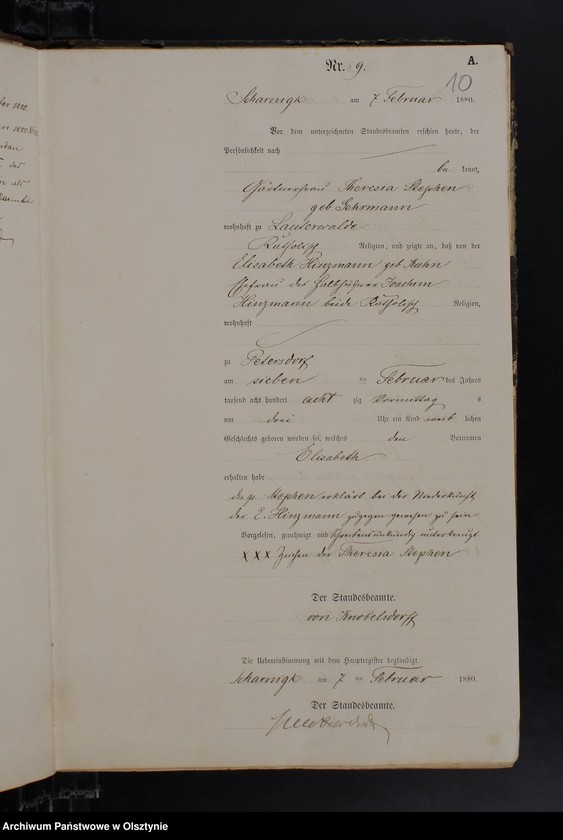 Nr. 9.
A.
10
Scharnigk am 7 Februar 1880.
Vor dem unterzeichneten Standesbeamten erschien heute, der
Persönlichkeit nach
be kannt,
Gärtnerfrau Theresia Stephen
geb Gehrmann
wohnhaft zu Lauterwalde
Katholisch Religion, und zeigte an, daß von der
Elisabeth Hinzmann geb Kuhn
Ehefrau des Halbhüfner Joachim
Hinzmann beide Katholisch Religion,
wohnhaft
zu Petersdorf
am sieben ten Februar des Jahres
tausend acht hundert acht zig Vormittag s
um drei Uhr ein Kind weib lichen
Geschlechts geboren worden sei, welches den Vornamen
Elisabeth
erhalten habe
die p. Stephen erklärt bei der Niederkunft
der E. Hinzmann zugegen gewesen zu sein
Vorgelesen, genehmigt und Schreibensunkundig unterkreuzt
XXX Zeichen der Theresia Stephen
Der Standesbeamte.
von Knobelsdorff
Die Uebereinstimmung mit dem Hauptregister beglaubigt.
Scharnigk am 7 ten Februar 1880.
Der Standesbeamte.
Archiwum Państwowe w Olsztynie